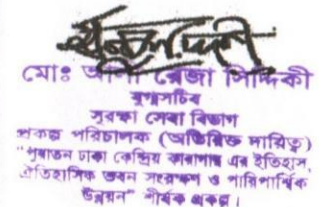 মোঃ আলী রেজা সিদ্দিকী
যুগ্মসচিব
সুরক্ষা সেবা বিভাগ
প্রকল্প পরিচালক (অতিরিক্ত দায়িত্ব)
"পুরাতন ঢাকা কেন্দ্রিয় কারাগার এর ইতিহাস,
ঐতিহাসিক ভবন সংরক্ষণ ও পারিপার্শ্বিক
উন্নয়ন" শীর্ষক প্রকল্প।